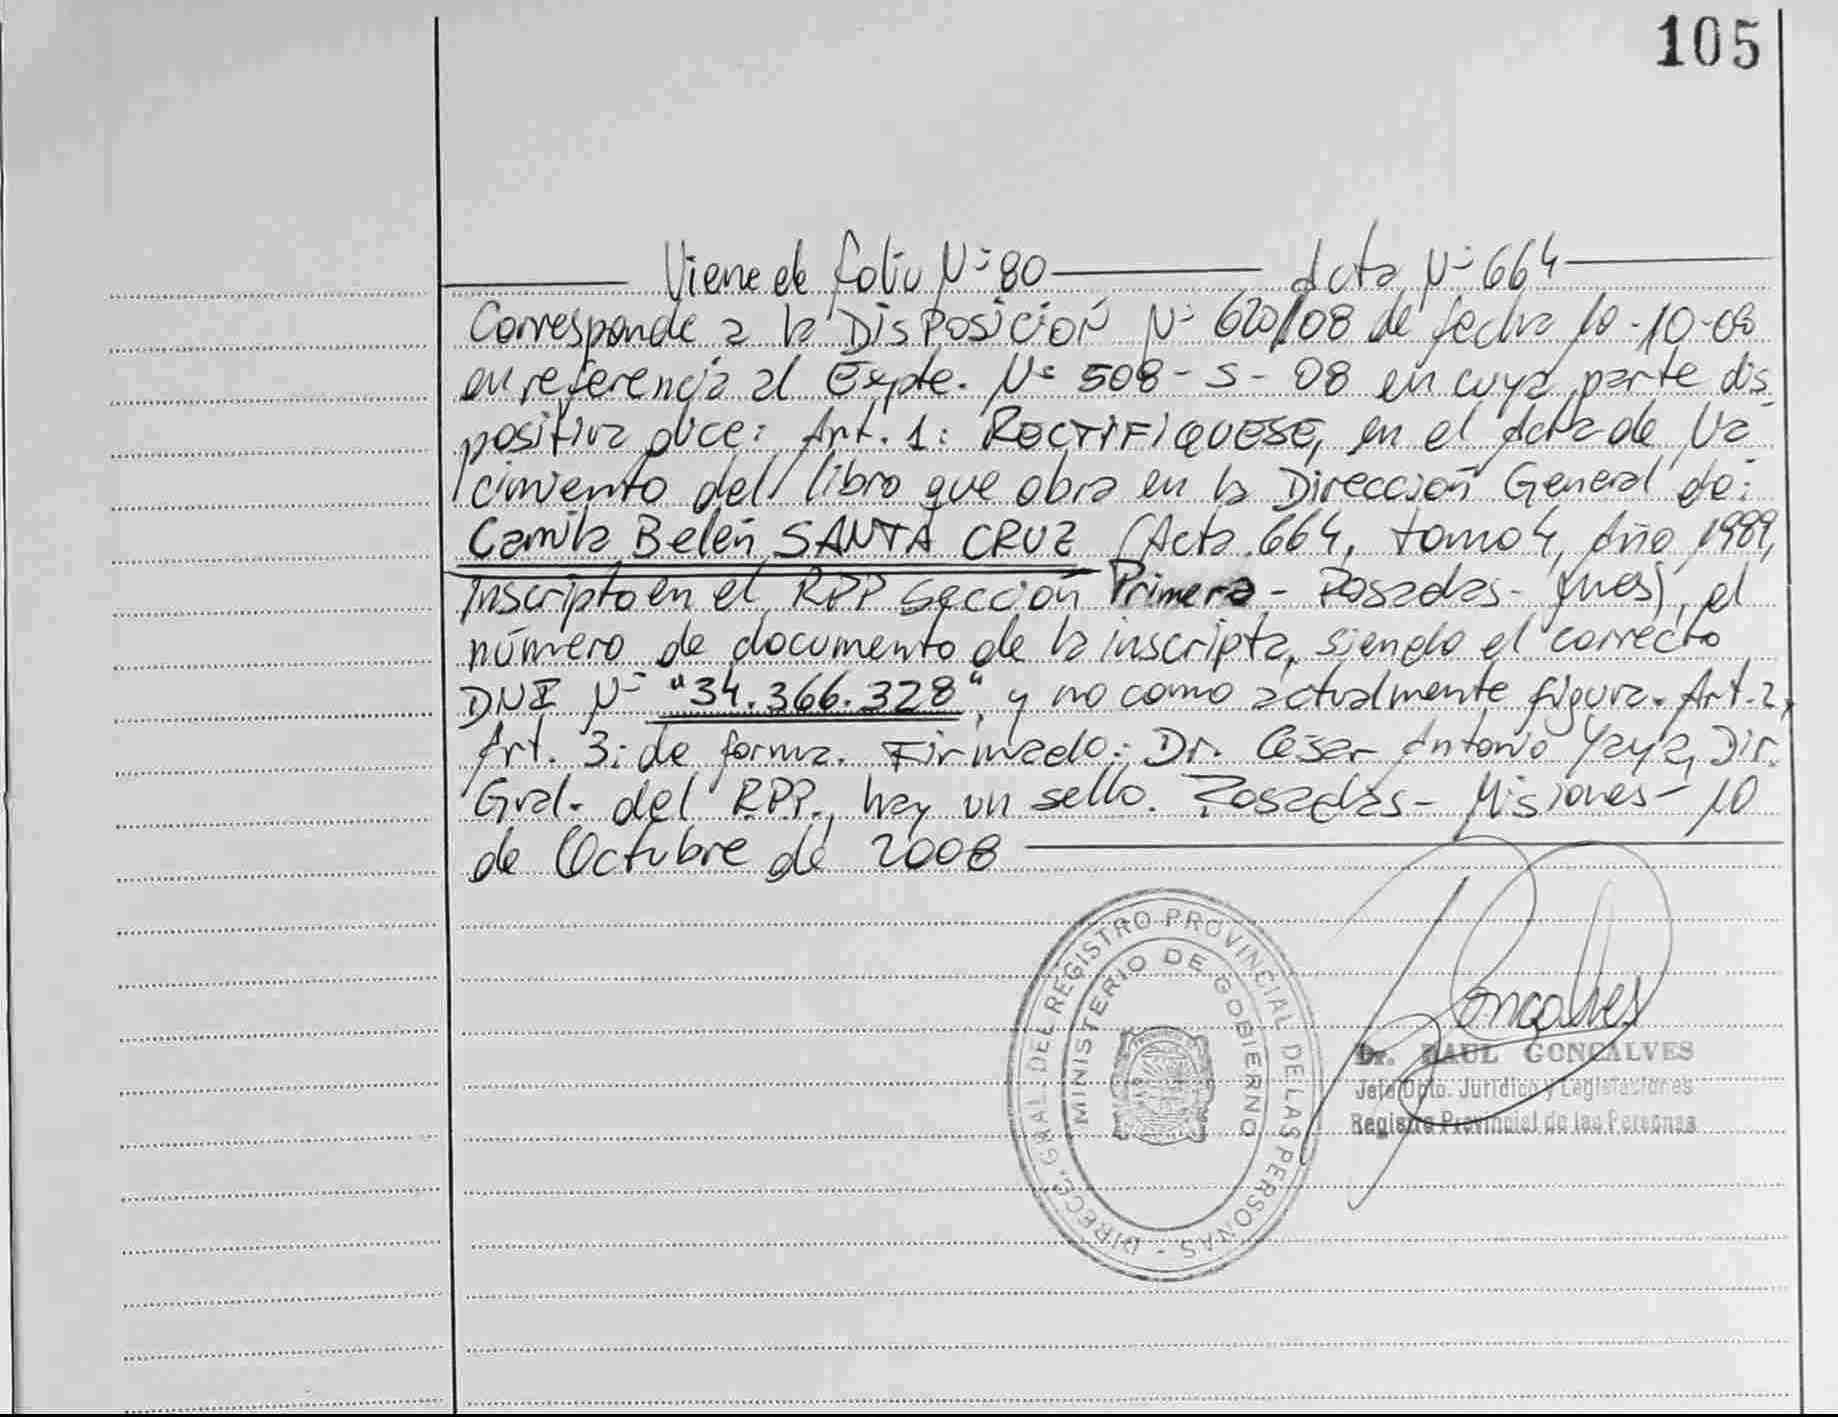 105
Viene de folio Nº 80 Acta Nº 664
Corresponde a la DISPOSICIÓN Nº 620/08 de fecha 10-10-08
en referencia al Expte. Nº 508-S-08 en cuya parte dis
positiva dice: Art. 1: RECTIFIQUESE, en el Acta de Na
cimiento del libro que obra en la Dirección General de:
Camila Belén SANTA CRUZ (Acta 664, tomo 4, Año 1989,
inscripto en el RPP Sección Primera - Posadas - Mnes), el
número de documento de la inscripta, siendo el correcto
DNI Nº "34.366.328", y no como actualmente figura. Art. 2,
Art. 3: de forma. Firmado: Dr. César Antonio Yaya, Dir.
Gral. del RPP., hay un sello. Posadas - Misiones - 10
de Octubre de 2008
DIRECC. GRAL. DEL REGISTRO PROVINCIAL DE LAS PERSONAS -
MINISTERIO DE GOBIERNO
Goncalves
Dr. RAUL GONCALVES
Jefe Dpto. Jurídico y Legislaciones
Registro Provincial de las Personas